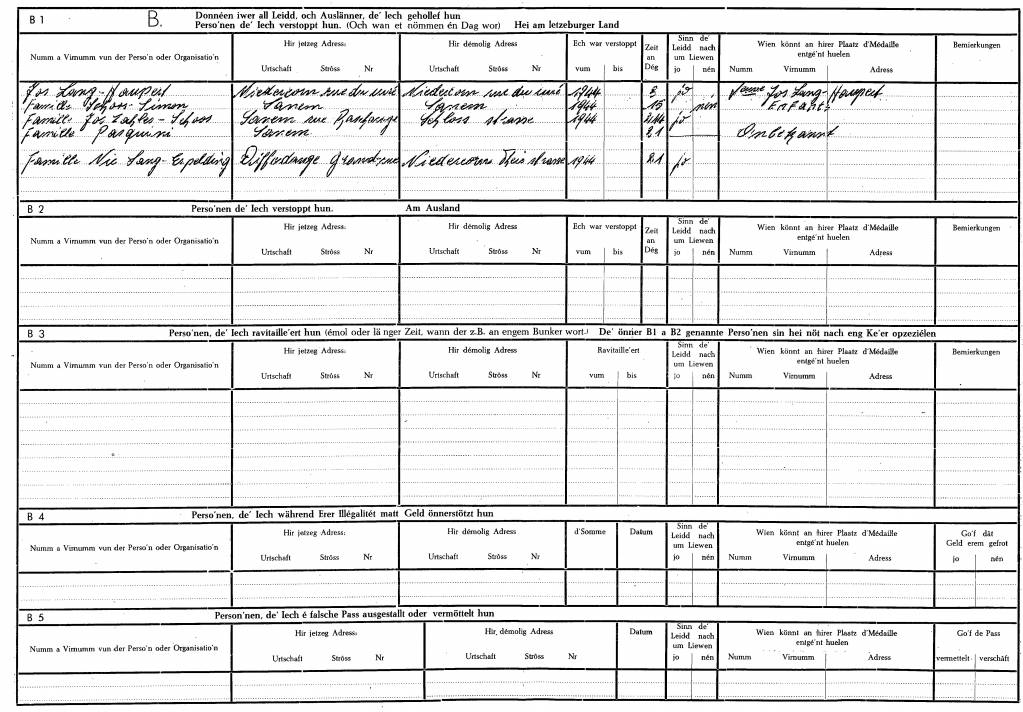 B 1 B. Donnéen iwer all Leidd, och Auslänner, de' Iech gehollef hun
Perso'nen de' Iech verstoppt hun. (Och wan et nömmen én Dag wor) Hei am letzeburger Land
Numm a Virnumm vun der Perso'n oder Organisatio'n Hir jetzeg Adress: Hir démolig Adress Ech war verstoppt Zeit an Dég Sinn de' Leidd nach um Liewen Wien könnt an hirer Plaatz d'Médaille entgé'nt huelen Bemierkungen
Urtschaft Ströss Nr Urtschaft Ströss Nr vum bis jo nén Numm Virnumm Adress
Jos. Lang-Haupert Niedercorn rue du Niedercorn rue du 1944 3 jo Jos Lang-Haupert
Famille Schoos-Simon Sanem Sanem 1944 15 nén Enfants
Famille Jos. - Schoos Sanem rue Schloss strasse 1944 214 jo
Famille Pasquini Sanem 21 Onbekannt
Famille Nic Lang-Erpelding Differdange Grand-rue Niedercorn strasse 1944 21 jo
B 2 Perso'nen de' Iech verstoppt hun. Am Ausland
Numm a Virnumm vun der Perso'n oder Organisatio'n Hir jetzeg Adress: Hir démolig Adress Ech war verstoppt Zeit an Dég Sinn de' Leidd nach um Liewen Wien könnt an hirer Plaatz d'Médaille entgé'nt huelen Bemierkungen
Urtschaft Ströss Nr Urtschaft Ströss Nr vum bis jo nén Numm Virnumm Adress
B 3 Perso'nen, de' Iech ravitaille'ert hun (émol oder lä nger Zeit, wann der z.B. an engem Bunker wort.) De' önnier B1 a B2 genannte Perso'nen sin hei nöt nach eng Ke'er opzeziélen
Numm a Virnumm vun der Perso'n oder Organisatio'n Hir jetzeg Adress: Hir démolig Adress Ravitaille'ert Sinn de' Leidd nach um Liewen Wien könnt an hirer Plaatz d'Médaille entgé'nt huelen Bemierkungen
Urtschaft Ströss Nr Urtschaft Ströss Nr vum bis jo nén Numm Virnumm Adress
B 4 Perso'nen, de' Iech während Erer Illégalitét matt Geld önnerstötzt hun
Numm a Virnumm vun der Perso'n oder Organisatio'n Hir jetzeg Adress: Hir démolig Adress d'Somme Datum Sinn de' Leidd nach um Liewen Wien könnt an hirer Plaatz d'Médaille entgé'nt huelen Go'f dät Geld erem gefrot
Urtschaft Ströss Nr Urtschaft Ströss Nr jo nén Numm Virnumm Adress jo nén
B 5 Person'nen, de' Iech é falsche Pass ausgestallt oder vermöttelt hun
Numm a Virnumm vun der Perso'n oder Organisatio'n Hir jetzeg Adress: Hir, démolig Adress Datum Sinn de' Leidd nach um Liewen Wien könnt an hirer Plaatz d'Médaille entgé'nt huelen Go'f de Pass
Urtschaft Ströss Nr Urtschaft Ströss Nr jo nén Numm Virnumm Adress vermettelt verschäft